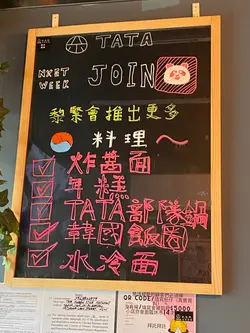 TATA
NEXT JOIN
WEEK
黎緊會推出更多
料理～
炸醬面
年糕
TATA部隊鍋
韓國飯團
水冷面
QR CODE